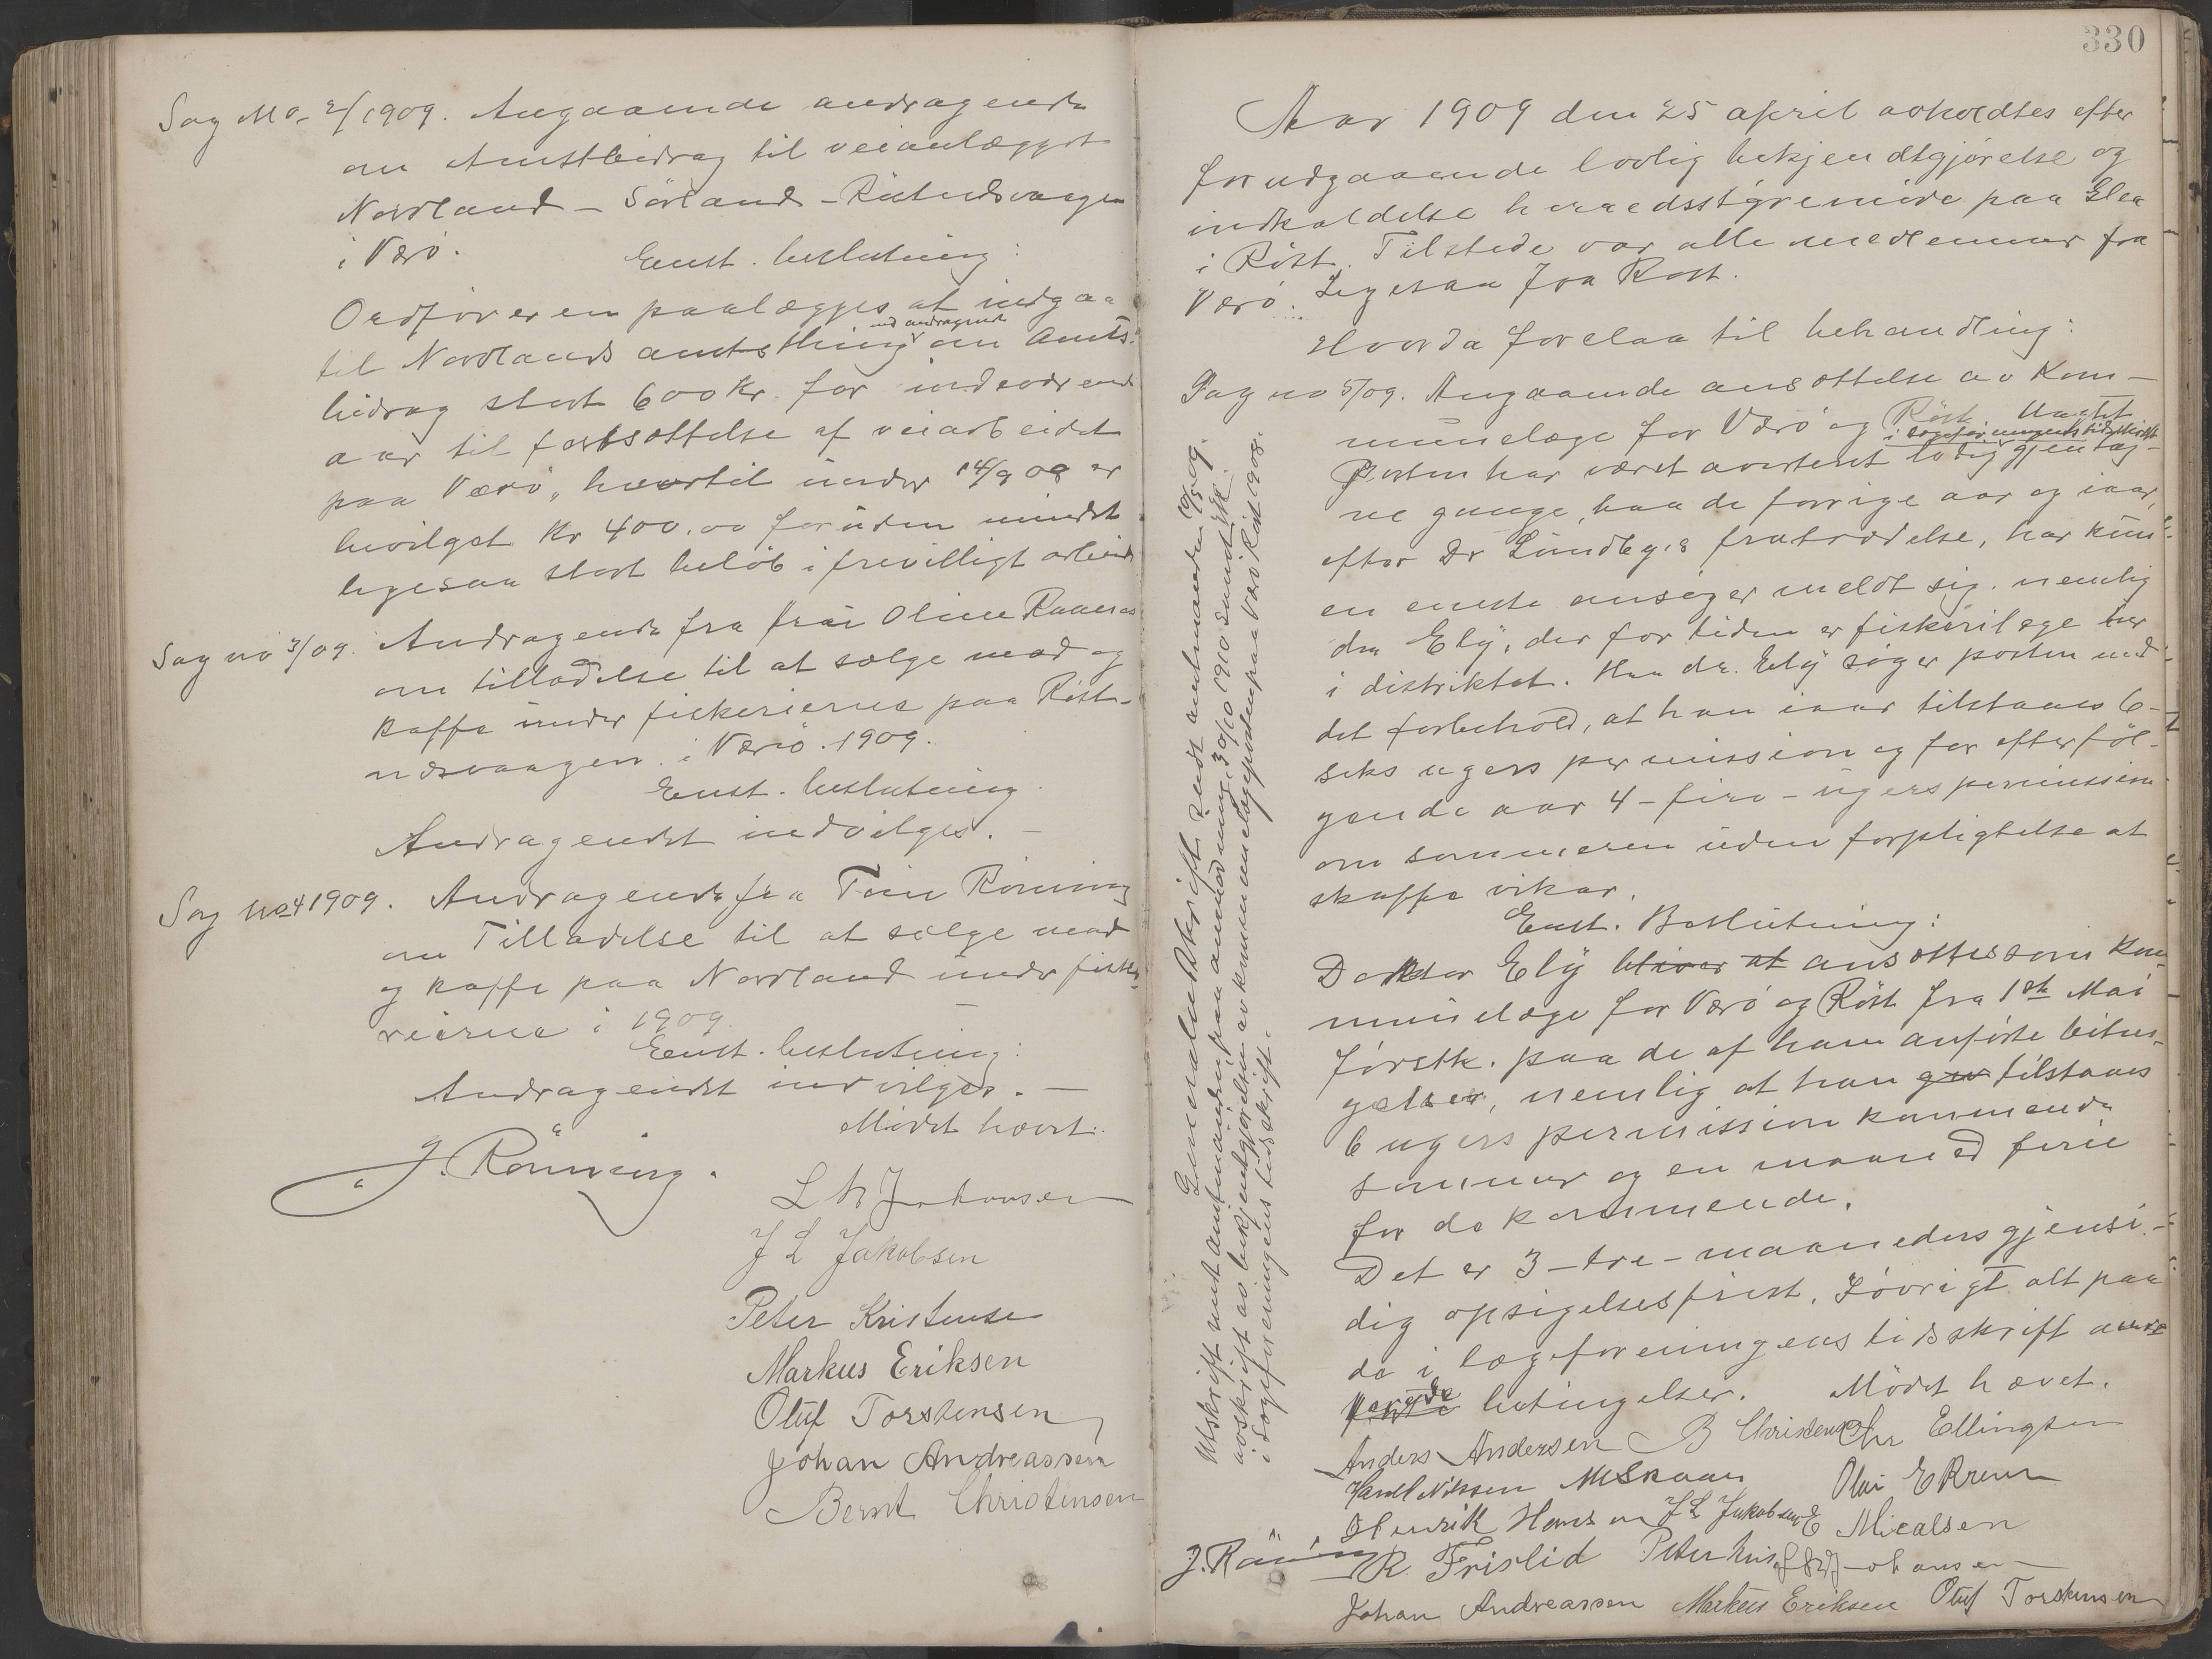 Sag No 2/1909. Angaaende andragende
om Amtsbidrag til veianlægget
Nordland - Sörland - Röstnesvaagen
i Værö.
Enst. beslutning:
Ordföreren paalægges at indgaa
til Nordlands amtsthing med andragende om Amts-
bidrag stort 600 Kr. for indeværende
aar til fortsættelse af veiarbeidet
paa Værö, hvortil under 14/9 08 er
bevilget Kr 400.00 foruden mindst
ligesaa stort beløb i frivilligt arbeide
Sag no 3/09. Andragende fra fru Oline
om tilladelse til at sælge mad og
kaffe under fiskerierne paa Röst-
nesvaagen i Værö. 1909.
Enst. beslutning.
Andragendet indvilges. -
Sag No 4 1909. Andragende fra Rönning
om Tilladelse til at sælge mad
og kaffe paa Nordland under fiske-
rierne i 1909
Enst. beslutning:
Andragendet indvilges. -
Mödet hævet.
J. Rönning.
L Johansen
J L Jakobsen
Peter Kristensen
Markus Eriksen
Oluf Torstensen
Johan Andreassen
Bernt Christensen
330
Aar 1909 den 25 april avholdtes efter
forudgaaende lovlig bekjendtgjørelse og
indkaldelse herredsstyremöde paa Glea
i Röst. Tilstede var alle medlemmer fra
Værö. Ligesaa fra Röst.
Hvorda forelaa til behandling:
Sag no 5/09. Angaaende ansættelse av Kom-
munelæge for Værö og Röst. Uagtet
i lægeforeningens tidsskrift
Posten har været averteret lovlig gjentag-
ne gange, baade forrige aar og iaar,
efter Dr Lundbys fratrædelse, har kun
en eneste ansøger meldt sig, nemlig
dr. Ely, der for tiden er fiskerilæge her
i distriktet. Han dr. Ely søger posten med
det forbehold, at han iaar tilstaaes 6-
seks ugers permission og for efterføl-
gende aar 4-fire-ugers permission
om sommeren uden forpligtelse at
skaffe vikar.
Enst. Beslutning:
Doktor Ely bliver at ansættes som Kom-
munelæge for Værö og Röst fra 1ste Mai
førstk. paa de af ham anførte betin-
gelser, nemlig at han tilstaaes
6 ugers permission kommende
sommer og en maaned ferie
for de kommende.
Det er 3-tre-maaneders gjensi-
dig opsigelsesfrist. Iøvrigt alt paa
de i lægeforeningens tidsskrift aver-
terede betingelser. Mödet hævet.
Anders Andersen B Christensen Chr Ellingsen
Harald Nilssen Olai E
Henrik Hansen J L Jakobsen E Micalsen
J. Rönning R. Fristid Peter Kris Johansen
Johan Andreassen Markus Eriksen Oluf Torstensen
Genpartudskrift sendt amtmanden 10/5 09.
Utskrift sendt amtmanden paa anmodning 30/10 1910 samt
avskrift av bekjendtgjørelsen av kommunelægeposten paa Værö Röst 1908.
i Lægeforeningens tidsskrift.